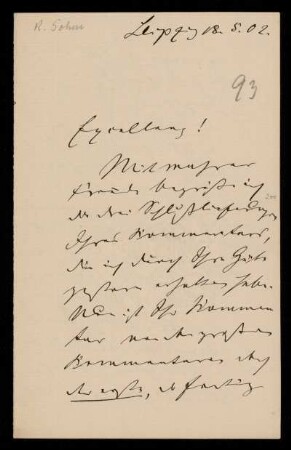 R. Sohm
Leipzig 18. 5. 02.
93
Excellenz!
Mit wahrer
Freude begrüße ich
die drei Schlußlieferungen
Ihres Kommentars,
die ich durch Ihre Güte
gestern erhalten habe.
Nun ist Ihr Kommen
tar
Kommentare
der erste,